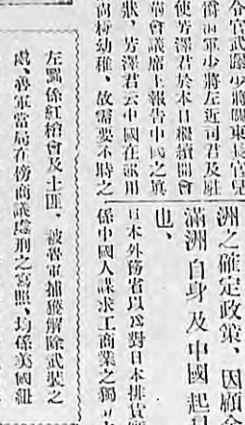 洲之確定政策、因顧全
滿洲自身及中國起見
也、
日本外務省以爲對日本排貨
係中國人謀求工商業之獨立
令官武藤少將關東長官
海軍少將左近司君及駐
使芳澤君於本日繼續開會
會議席上報告中國之眞
狀、芳澤君云中國在重用
尙稱幼稚、故需要不時之
左黑係紅槍會及土匪、被魯軍捕獲解除武裝之
處、魯軍當局在傍商議處刑之寫照、均係美國紐